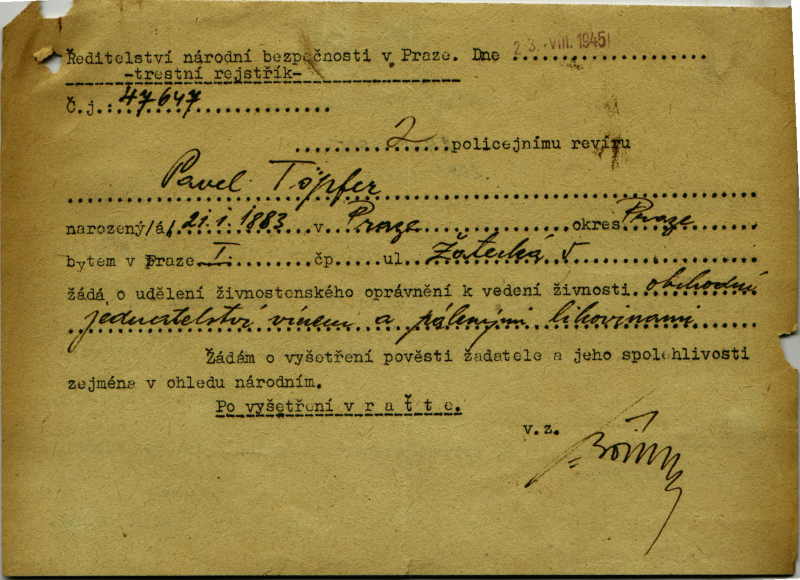 Ředitelství národní bezpečnosti v Praze. Dne 23. VIII. 1945
-trestní rejstřík-
Č.j.: 47647
2 policejnímu revíru
Pavel Töpfer
narozený/á/ 21.1.1883 v Praze okres Praze
bytem v Praze I. čp..... ul. Žatecká 5
žádá o udělení živnostenského oprávnění k vedení živnosti obchodní
jednatelství vínem a pálenými lihovinami
Žádám o vyšetření pověsti žadatele a jeho spolehlivosti
zejména v ohledu národním.
Po vyšetření v r a ť t e.
v.z.